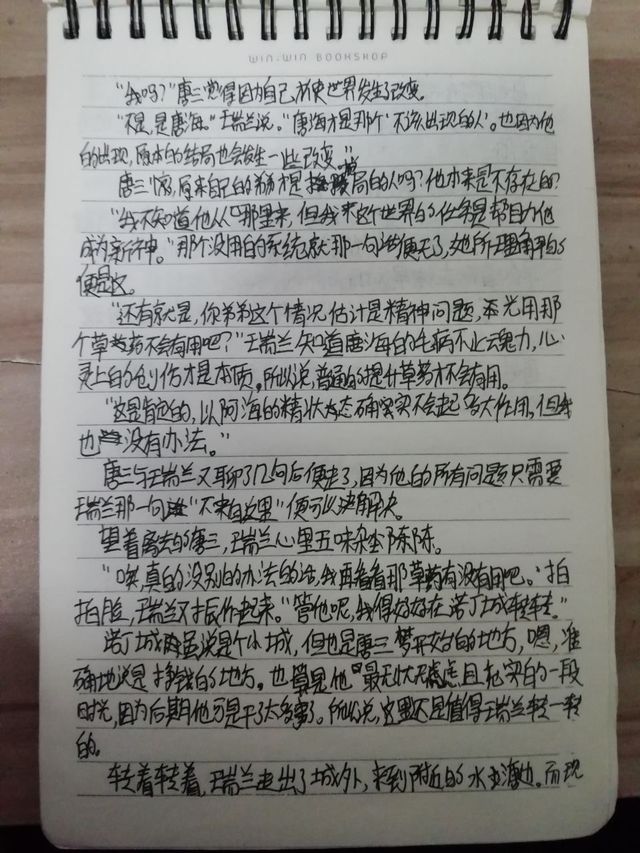 WIN-WIN BOOKSHOP
“我吗？”唐三觉得因为自己,才使世界发生了改变。
“不是,是唐海。”王瑞兰说。“唐海才是那个‘不该出现的人’。也因为他
的出现,原本的结局也会发生一些改变。”
唐三一愣,原来自己的弟弟才是局的人吗?他本来是不存在的?
“我不知道他从哪里来,但我来这个世界的任务是帮助他
成为新神。”那个没用的系统就那一句话便无了,她所理解的
便是这。
“还有就是,你弟弟这个情况估计是精神问题,光用那
个草药不会有用吧?”王瑞兰知道唐海的生病不止魂力,心
灵上的创伤才是本质。所以说,普通的提升草药才不会有用。
“这是肯定的,以阿海的精状态确实不会起多大作用,但我
也没有办法。”
唐三与王瑞兰又聊了几句后便走了,因为他的所有问题只需要
王瑞兰那一句“不来自这里”便可以解决。
望着离去的唐三,王瑞兰心里五味杂陈。
“唉,真的没别的办法的话,我再看看那草药有没有用吧。”拍
拍脸,王瑞兰又振作起来。“管他呢,我得好好在诺丁城转转。”
诺丁城虽说是个小城,但也是唐三梦开始的地方,嗯,准
确地说是挣钱的地方。也算是他最无忧无虑且充实的一段
时光,因为后期他可是干了太多事了。所以说,这里还是值得王瑞兰转一转
的。
转着转着,王瑞兰走出了城外,来到附近的水边。而现